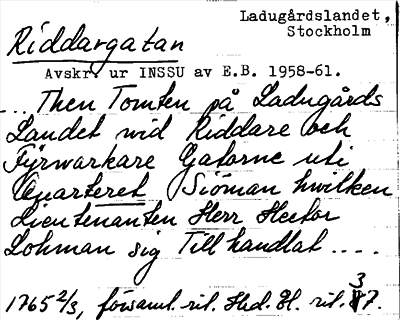 Ladugårdslandet,
Stockholm
Riddargatan
Avskr. ur INSSU av E.B. 1958-61.
... Then Tomten på Ladugårds
Landet wid Riddare och
Fyrwarkare Gatorne uti
Quarteret Siöman hwilken
Lieutenanten Herr Hector
Lohman sig Till handlat ....
1765 2/3, församl. rit. Hed. El. rit. 37.